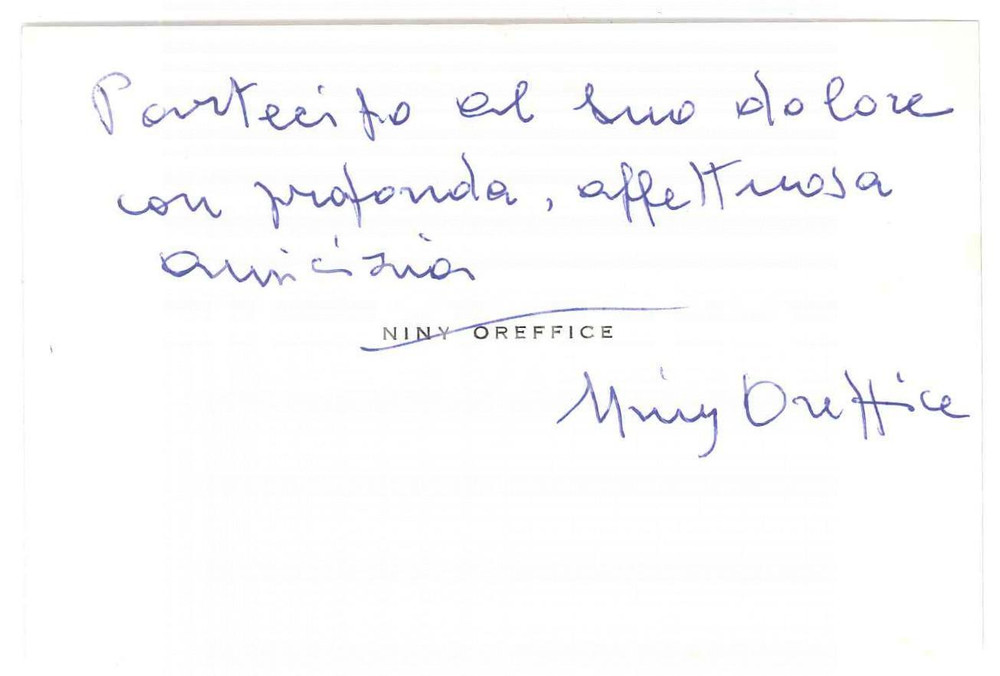 Partecipo al suo dolore
con profonda, affettuosa
amicizia
NINY OREFFICE
Niny Oreffice